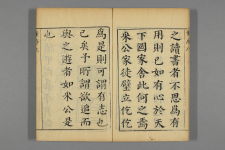 之讀書者不思爲有
用則已如有心於天
下國家舍此何之焉
米公家徒壁立仡仡
爲是則可謂有志也
已矣予所謂欲進而
與之遊者如米公是
也